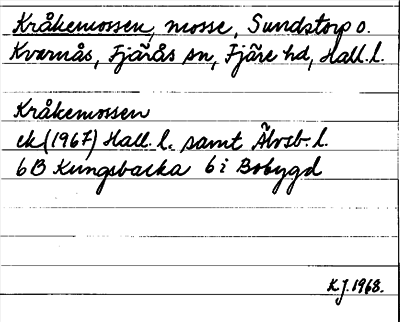 Kråkemossen, mosse, Sundstorp o.
Kvarnås, Fjärås sn, Fjäre hd, Hall. l.
Kråkemossen
ek (1967) Hall. l. samt Älvsb. l.
6B Kungsbacka 6 i Bobygd
K.J. 1968.